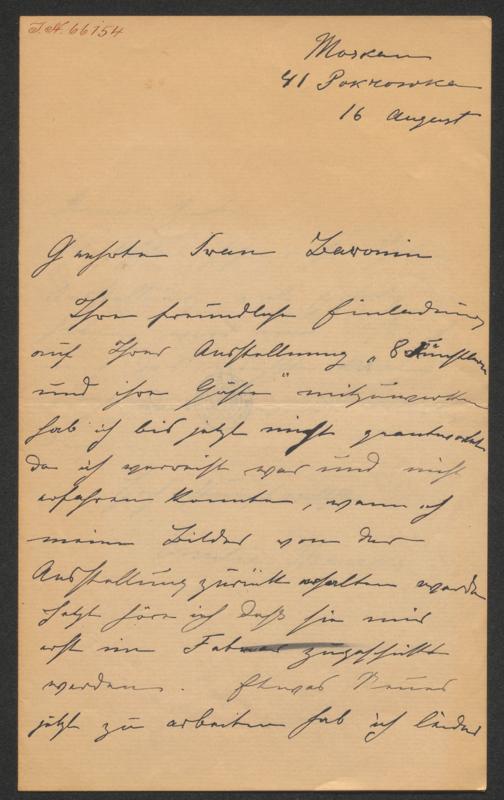 J. N. 66154
Moskau
41 Pokrowka
16 August
Geehrte Frau Baronin
Ihre freundliche Einladung
auf Ihrer Ausstellung „8 Künstlern
und ihre Gäste“ mitzuwirken
hab ich bis jetzt nicht geantwortet
da ich verreist war und nicht
erfahren konnte, wann ich
meine Bilder von der
Ausstellung zurück erhalten werde
Jetzt höre ich daß sie mir
erst im Februar zugeschickt
werden. Etwas Neues
jetzt zu arbeiten hab ich leider